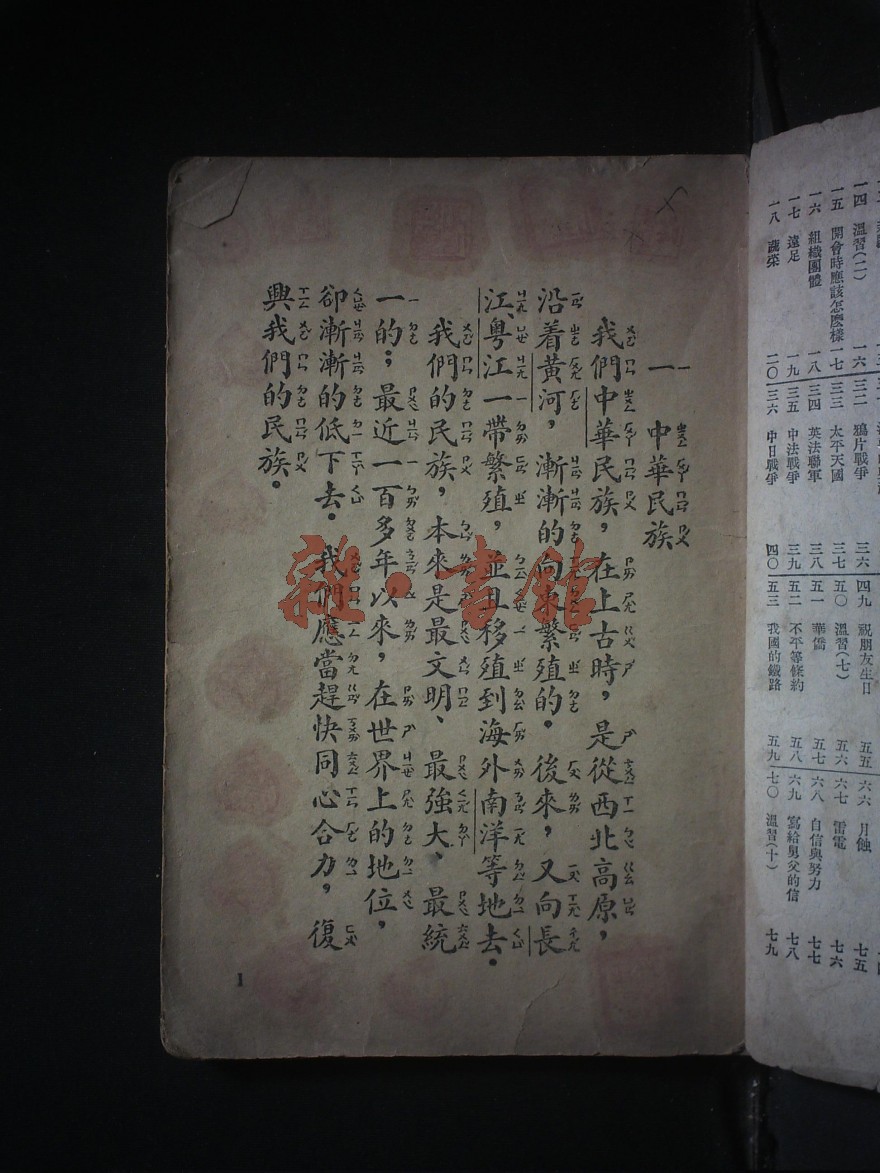 一四 溫習(二) 一六 三二 鴉片戰爭 三六 四九 祝朋友生日 五五 六六 月蝕 七五
一五 開會時應該怎麼樣 一七 三三 太平天國 三七 五〇 溫習(七) 五六 六七 雷電 七六
一六 組織團體 一八 三四 英法聯軍 三八 五一 華僑 五七 六八 自信與努力 七七
一七 遠足 一九 三五 中法戰爭 三九 五二 不平等條約 五八 六九 寫給舅父的信 七八
一八 虛榮 二〇 三六 中日戰爭 四〇 五三 我國的鐵路 五九 七〇 溫習(十) 七九
一 中華民族
我們中華民族，在上古時，是從西北高原，
沿着黃河，漸漸的向東繁殖的。後來，又向長
江、粵江一帶繁殖，並且移殖到海外南洋等地去。
我們的民族，本來是最文明、最強大、最統
一的；最近一百多年以來，在世界上的地位，
卻漸漸的低下去。我們應當趕快同心合力，復
興我們的民族。
1
雜·書館